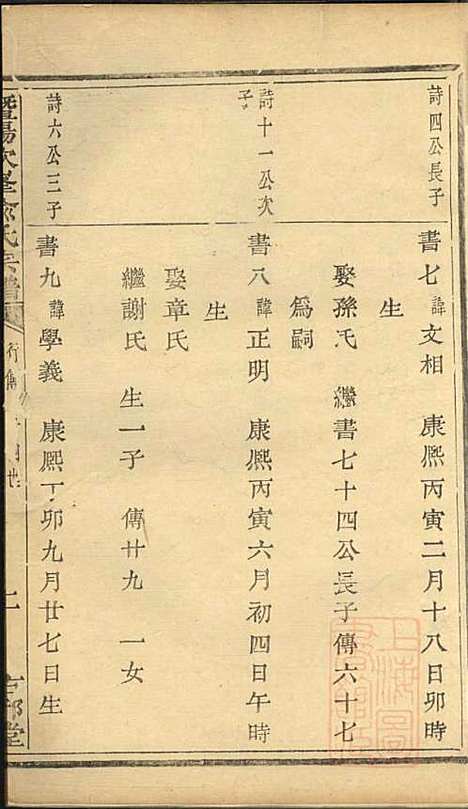 詩四公長子
書七 諱文相 康熙丙寅二月十八日卯時
生
娶孫氏 繼書七十四公長子傳六十七
為嗣
詩十一公次
子
書八 諱正明 康熙丙寅六月初四日午時
生
娶章氏
繼謝氏 生一子 傳廿九 一女
詩六公三子
書九 諱學義 康熙丁卯九月廿七日生
暨陽次峯俞氏宗譜
行傳